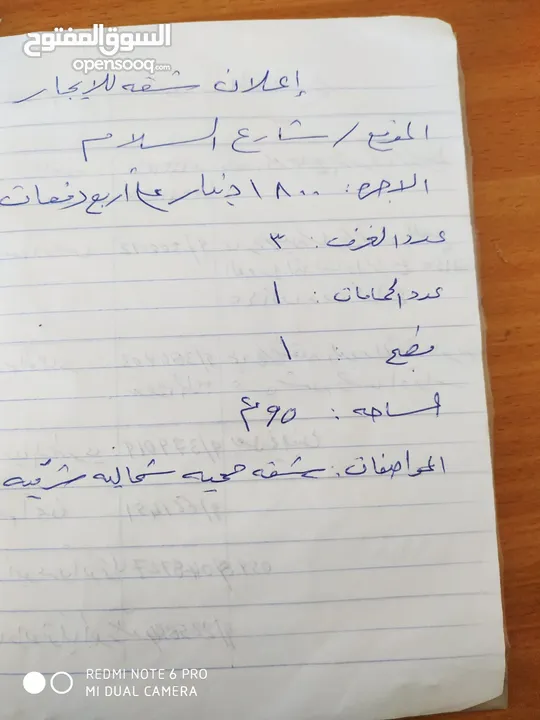 السوق المفتوح
opensooq.com
إعلان شقه للإيجار
الموقع / شارع السلام
الاجره: ١٨٠٠ دينار ع أربع دفعات
عدد الغرف: ٣
عدد الحمامات: ١
مطبخ : ١
المساحه: ٩٥ م٢
المواصفات: شقه صحيه شماليه شرقيه
REDMI NOTE 6 PRO
MI DUAL CAMERA